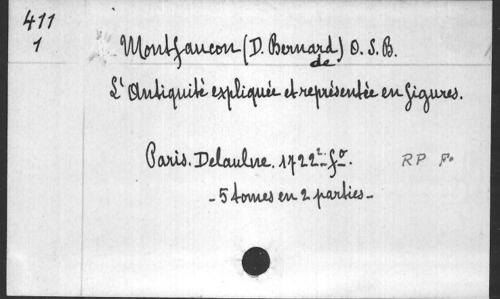 411
1
Montfaucon (D. Bernard de) O. S. B.
L'Antiquité expliquée et représentée en figures.
Paris. Delaulne. 1722². fº. RP Fº
- 5 tomes en 2 parties -